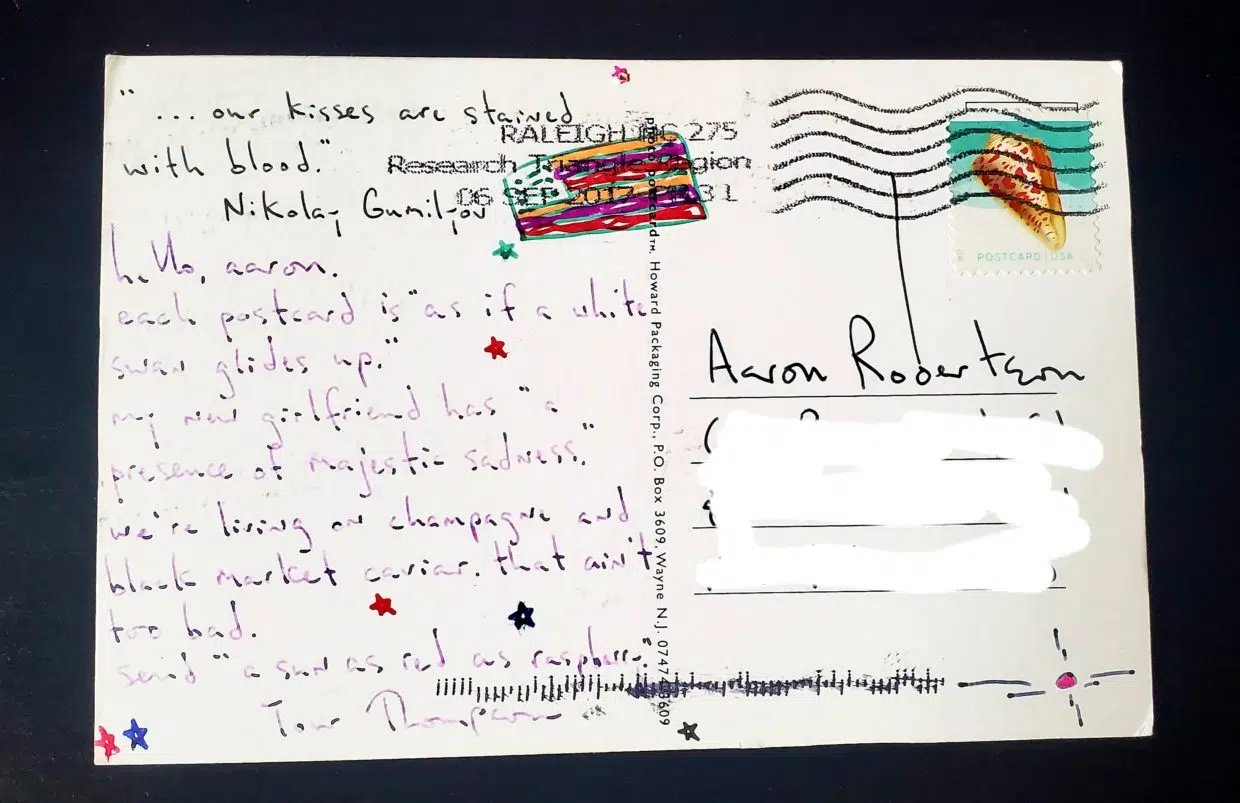 "... our kisses are stained
with blood."
Nikolay Gumilyov
hello, aaron.
each postcard is "as if a white
swan glides up."
my new girlfriend has "a
presence of majestic sadness."
we're living on champagne and
black market caviar. that ain't
too bad.
send "a sun as red as raspberry."
Tom Thompson
RALEIGH NC 275
Research Triangle Region
06 SEP 2017 31
Howard Packaging Corp., P.O. Box 3609, Wayne N.J. 07474-3609
POSTCARD USA
Aaron Robertson